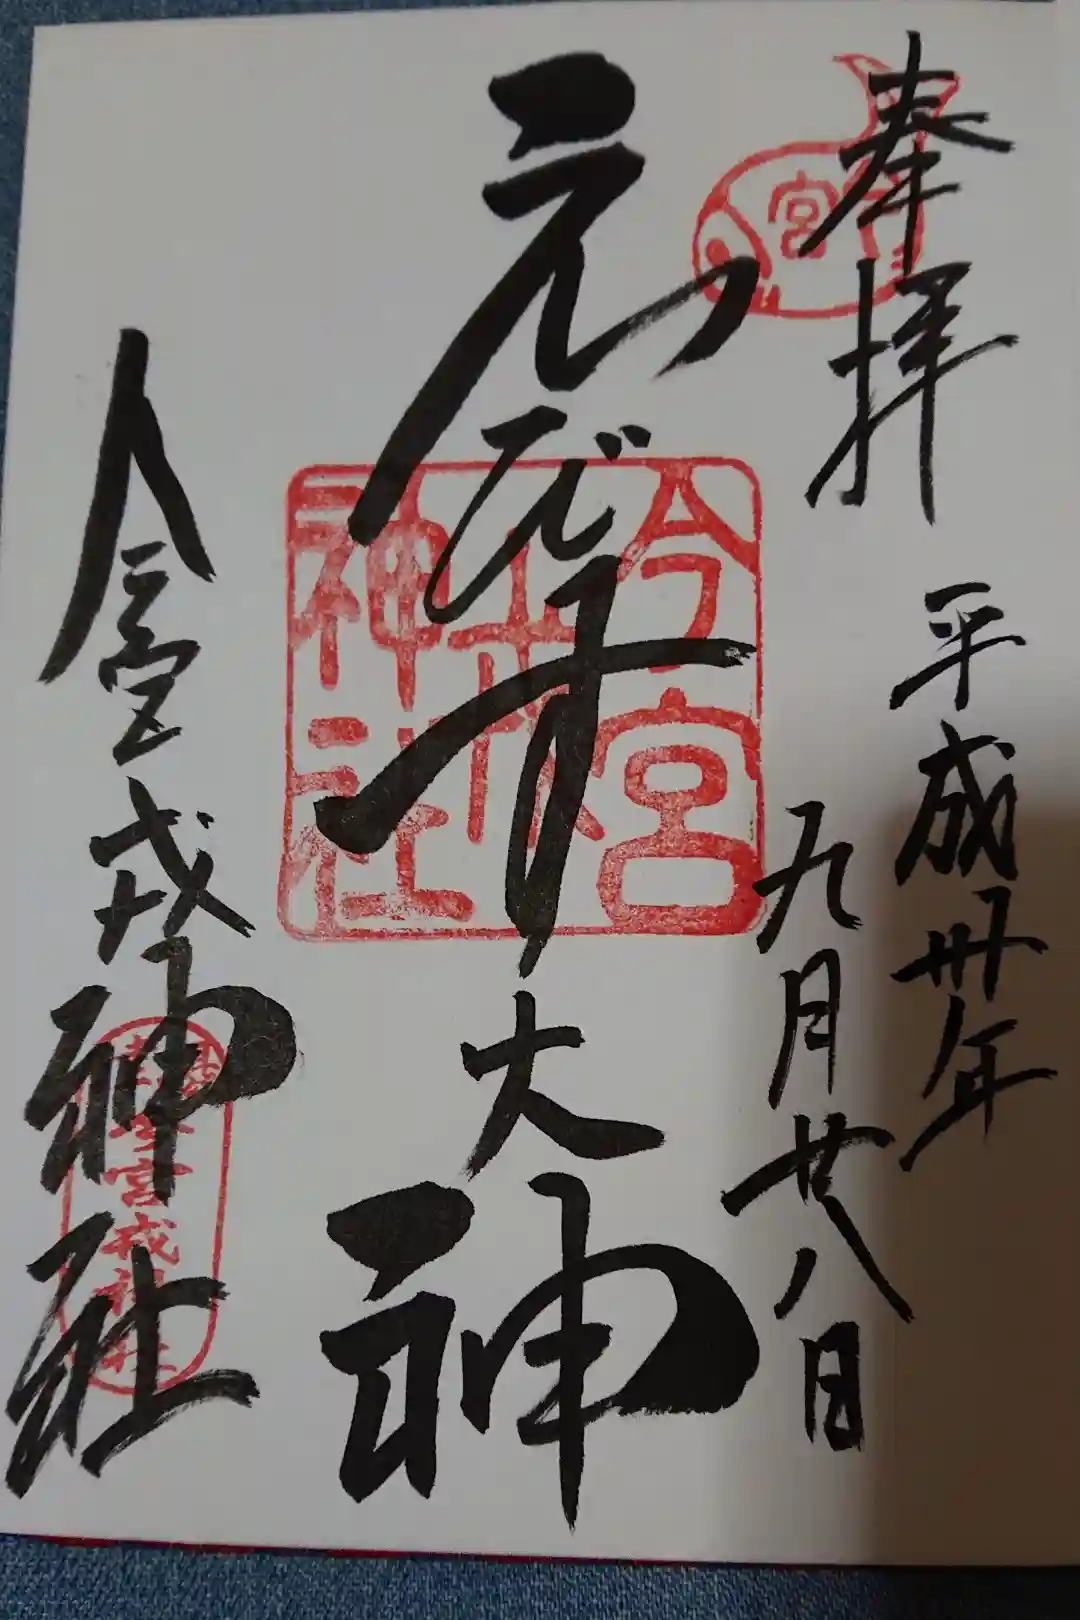 奉拝
平成卅年
九月廿八日
えびす大神
今宮戎神社
宮
今宮
戎
神社
宮戎神社